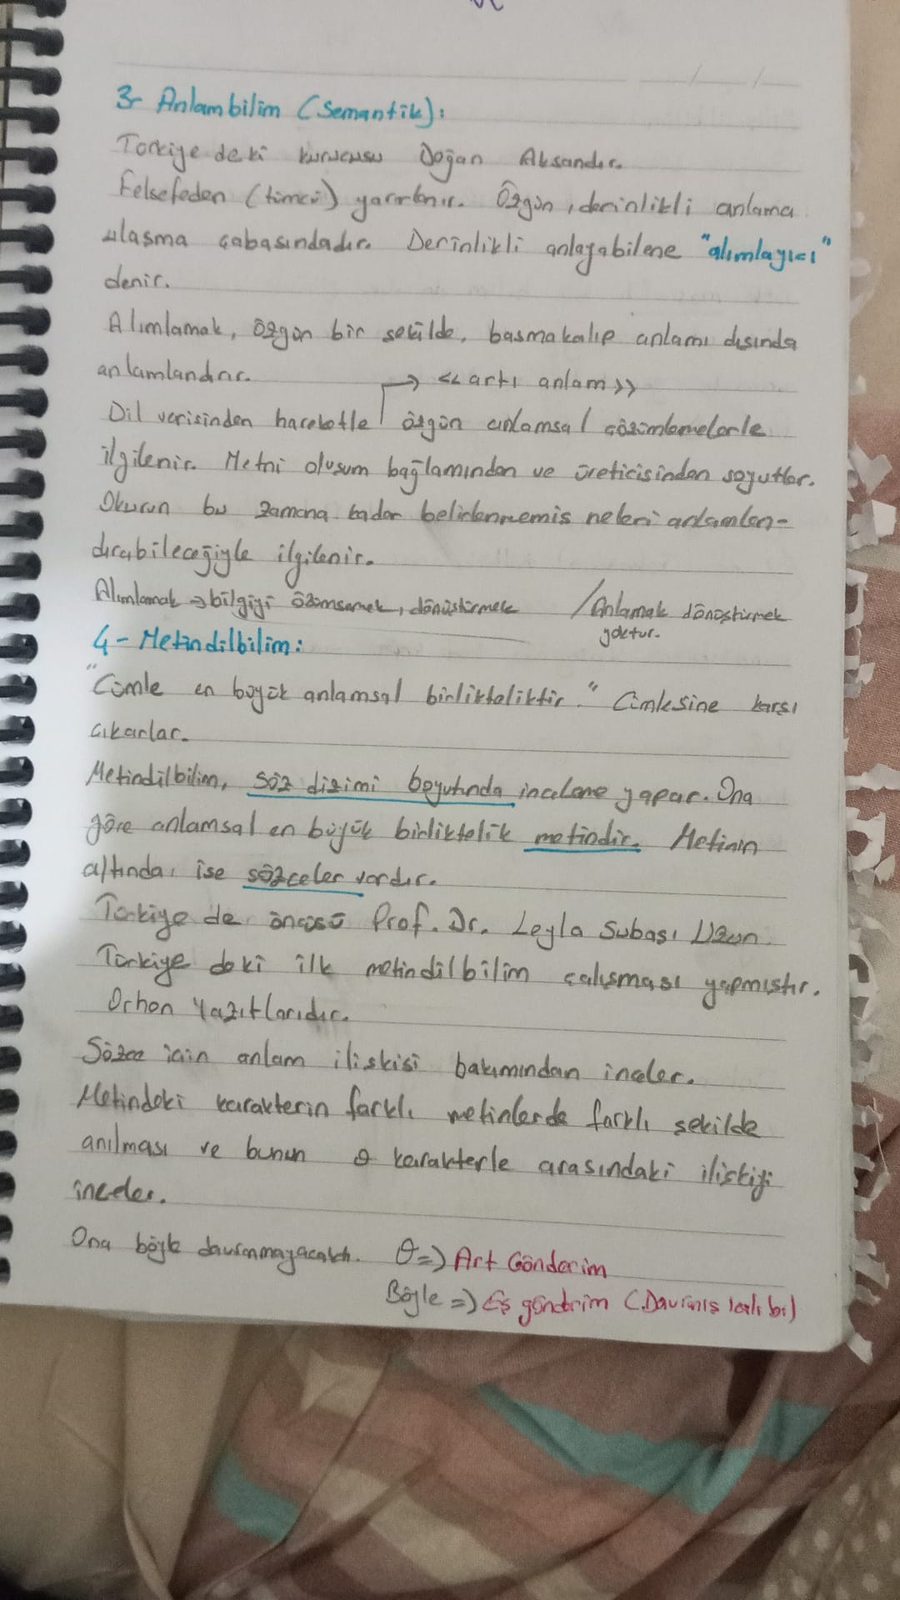 3- Anlambilim (Semantik):
Türkiye'deki kurucusu Doğan Aksandır.
Felsefeden (tümcü) yararlanır. Özgün, derinlikli anlama
ulaşma çabasındadır. Derinlikli anlayabilene "alımlayıcı"
denir.
Alımlamak, özgün bir şekilde, basmakalıp anlamı dışında
anlamlandırır.
<< artı anlam >>
Dil verisinden hareketle özgün anlamsal çözümlemelerle
ilgilenir. Metni oluşum bağlamından ve üreticisinden soyutlar.
Okurun bu zamana kadar belirlenmemiş neleri anlamlan-
dırabileceğiyle ilgilenir.
Alımlamak → bilgiyi özümsemek, dönüştürmek / Anlamak dönüştürmek
yoktur.
4- Metindilbilim:
"Cümle en büyük anlamsal birlikteliktir." Cümlesine karşı
çıkarlar.
Metindilbilim, söz dizimi boyutunda inceleme yapar. Ona
göre anlamsal en büyük birliktelik metindir. Metinin
altında ise sözceler vardır.
Türkiye'de öncüsü Prof. Dr. Leyla Subaşı Uzun.
Türkiye'deki ilk metindilbilim çalışması yapmıştır.
Orhon Yazıtlarıdır.
Sözce için anlam ilişkisi bakımından inceler.
Metindeki karakterin farklı metinlerde farklı şekilde
anılması ve bunun o karakterle arasındaki ilişkiyi
inceler.
Ona böyle davranmayacaktı. O => Art Gönderim
Böyle => Eş gönderim (Davranış